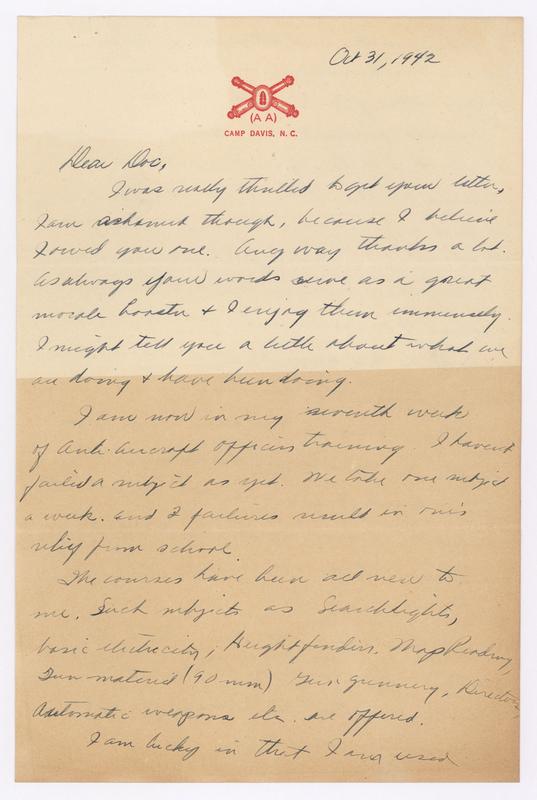 Oct 31, 1942
(A A)
CAMP DAVIS, N. C.
Dear Doc,
I was really thrilled to get your letter,
I am ashamed though, because I believe
I owed you one. Any way thanks a lot.
As always your words serve as a great
morale booster & I enjoy them immensely.
I might tell you a little about what we
are doing & have been doing.
I am now in my seventh week
of Anti-Aircraft officers training. I haven't
failed a subject as yet. We take one subject
a week. and 2 failures result in one's
relief from school.
The courses have been all new to
me. Such subjects as Searchlights,
basic electricity, Heightfinders, Map Reading,
Gun materiel (90 mm) Gun gunnery, Directors,
Automatic weapons etc. are offered.
I am lucky in that I am used